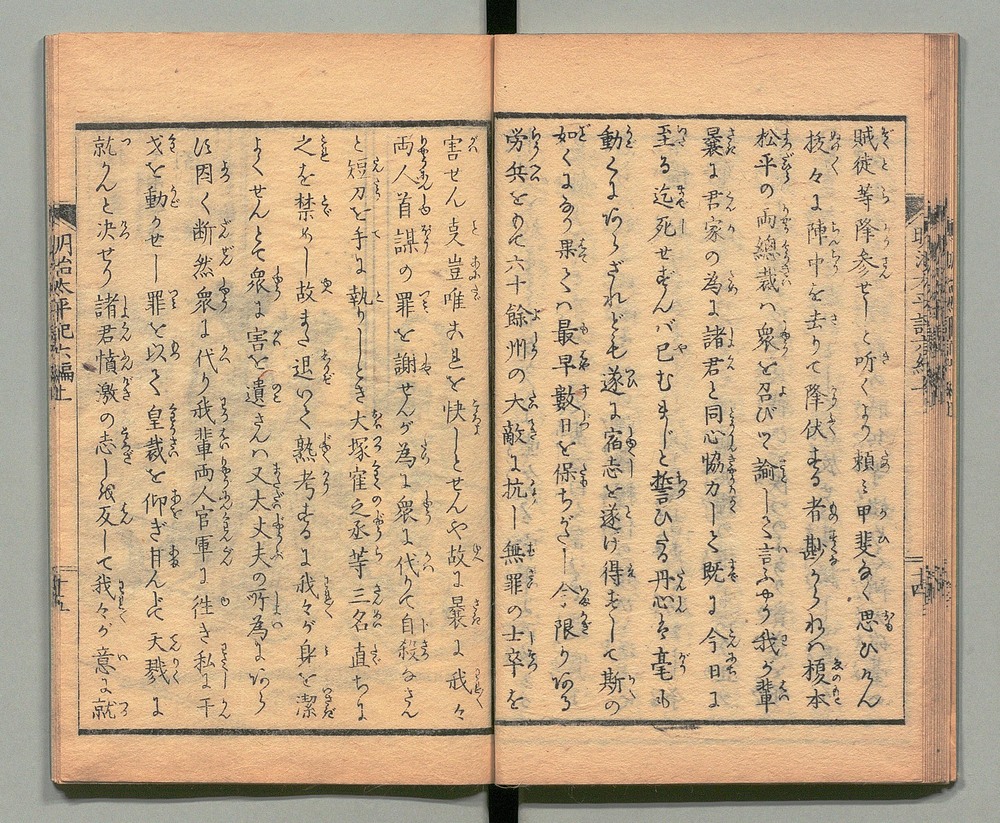 賊徒等降参せしと听くより頼み甲斐なく思ひけん
抜々に陣中を去りて降伏する者尠からねバ榎本
松平の両總裁ハ衆を召びツ諭しゝ言ふやう我が輩
曩に君家の為に諸君と同心協力しして既に今日に
至る迄死せずんバ已むまじと誓ひたる丹心ハ毫も
動くにあらざれども遂に宿志を遂け得ずして斯の
如くになり果てハ最早數日を保ちがたし今限りある
労兵をもて六十餘州の大敵に抗し無罪の士卒を
害せん㕝豈唯公且を快しとせんや故に曩に我々
両人首謀の罪を謝せんが為に衆に代りて自殺なさん
と短刀を手に執りしとき大塚寉之丞等三名直ちに
之を禁めし故また退いて熟考するに我々が身を潔
よくせんとて衆に害を遺さんハ又大丈夫の所為にあら
ず因て断然衆に代り我輩両人官軍に徃き私に干
戈を動かせし罪を以て皇裁を仰ぎ甘んじて天戮に
就かんと决せり諸君憤激の志しを反して我々が意に就
明治太平記六編上
十五
十四